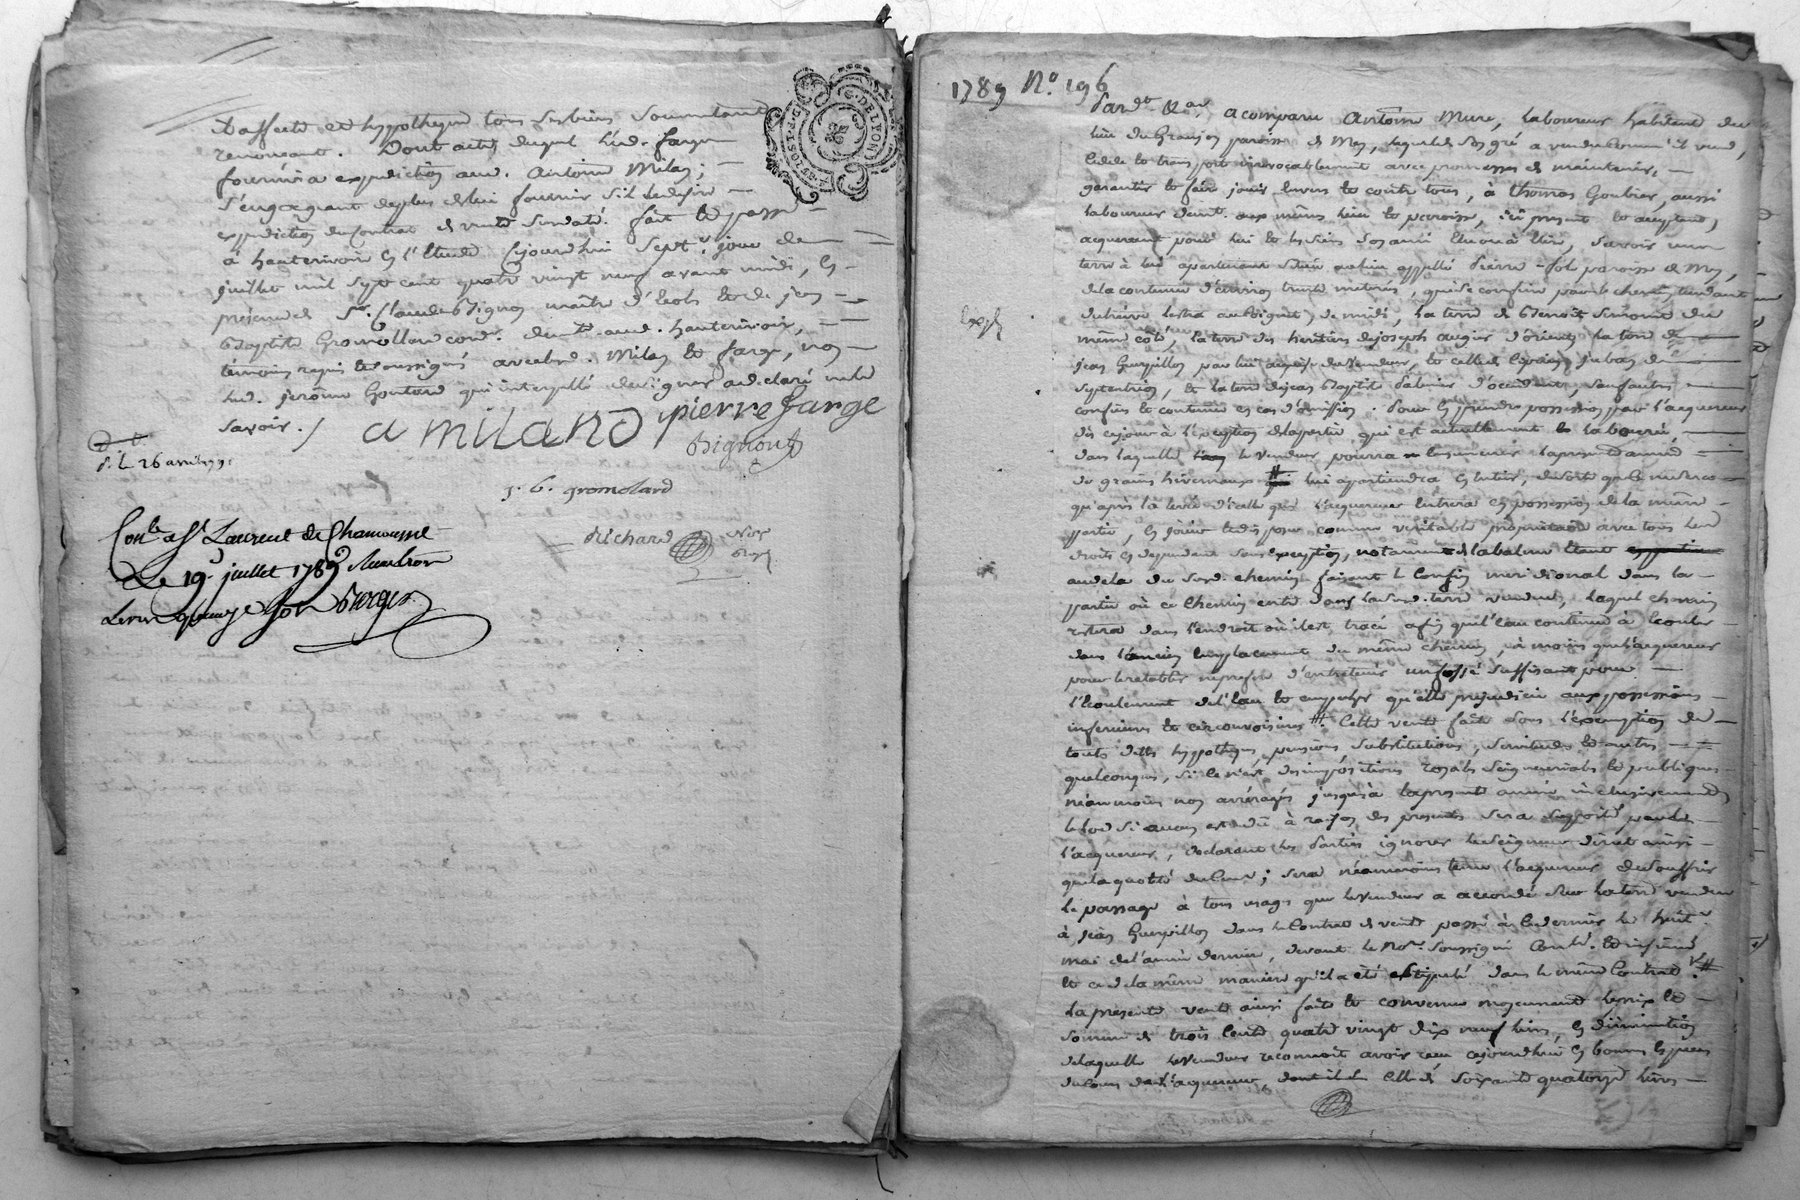 affecté et hypothequé tous ses biens
renonceant. Dont acte duquel led. farge
fournira expedition aud. Antoine Milan;
s'engageant de plus de lui fournir s'il le desire
expedition du Contrat de vente susdaté. fait et passé
à hauterivoire en l'Etude cejourdhui sept.e jour de
juillet mil sept cent quatre vingt neuf avant midi, en
présence de Sr. Claude Bignon maître d'école et de jean
Baptiste Gromollard cord.r demt. aud. hauterivoire,
témoins requis et soussignés avec led. Milan et farge, non
led. jerôme qui interpellé de signer a déclaré ne le
savoir. /
a milano pierre farge
Bignon
j. b. gromolard
Richard Nore
Royal
d. l. 26 avril 1791
Con.lé a St Laurent de Chamousset
Le 19e juillet 1789
quinze sols
G. DE LYON
1789 No. 196
Pardt. a comparu Antoine Mure, laboureur habitant du
lieu du Granjon paroisse de Mey, lequel de son gré a vendu comme il vend,
cede et transporte irrevocablement avec promesses de maintenir,
garantir et faire jouir envers et contre tous, à thomas Goubier, aussi
laboureur demt. aux mêmes lieu et paroisse, ici present et acceptant,
acquereur pour lui et les siens son ami élu ou à élire, savoir une
terre à lui apartenant située au lieu appellé Pierre-fole paroisse de Mey,
de la contenue d'environ trente meterées, qui se confine par le chemin tendant
de midi, la terre de Benoit Simond du
même côté, la terre des heritiers de joseph augier d'orient, la terre de
jean Guerpillon par lui aquise du Vendeur, et celle de Cyprien juban de
septentrion, et la terre de jean Baptiste d'occident, sauf autres
confins et contenue en cas d'omission. Pour en prendre possession par l'acquereur
dès cejour à l'exception de la partie qui est actuellement labourée,
dans laquelle le vendeur pourra ensemencer la presente année
de grains hivernaux # lui apartiendra en entier, de sorte que ce ne sera
qu'après la levée d'icelle que l'acquereur entrera en possession de la même
partie, en jouir et disposer comme veritable proprietaire avec tous les
droits en dependant sans exception, notament de la balme étant
audela du susd. chemin faisant le confin meridional dans la
partie où ce chemin entre dans lasusd. terre vendue, lequel chemin
restera dans l'endroit où il est tracé afin que l'eau continue à s'écouler
dans l'ancien emplacement du même chemin, à moins que l'acquereur
pour le retablir ne prefere d'entretenir un fossé suffisant pour
l'ecoulement de l'eau et empecher qu'elle prejudicie aux possessions
inferieures et circonvoisines #. Cette vente faite sous l'exemption de
toute dette hypotheque, pensions substitutions, servitudes et autres
quelconques, si ce n'est des impositions royales seigneuriales et publiques
neanmoins non arréragés jusqu'à la presente année inclusivement
le lod si aucun est dû à raison des presentes sera supporté par
l'acquereur, declarant les Parties ignorer le seigneur direct ainsi
que la quotité du cens; sera néanmoins tenu l'acquereur de souffrir
le passage à tous usages que le vendeur a accordé sur la terre vendue
à jean Guerpillon dans le Contrat de vente passé à ce dernier le huit
mai de l'année derniere, devant le Nore. soussigné Conlé. et insinué
et ce de la même maniere qu'il a été stipulé dans le même Contrat. #
La presente vente ainsi faite et convenue moyennant le prix et
somme de trois cents quatre vingt dix neuf livres, en diminution
de laquelle le vendeur reconnoit avoir reçu cejourdhui en bonnes especes
du cours de l'acquereur, celle de soixante quatorze livres
Expé